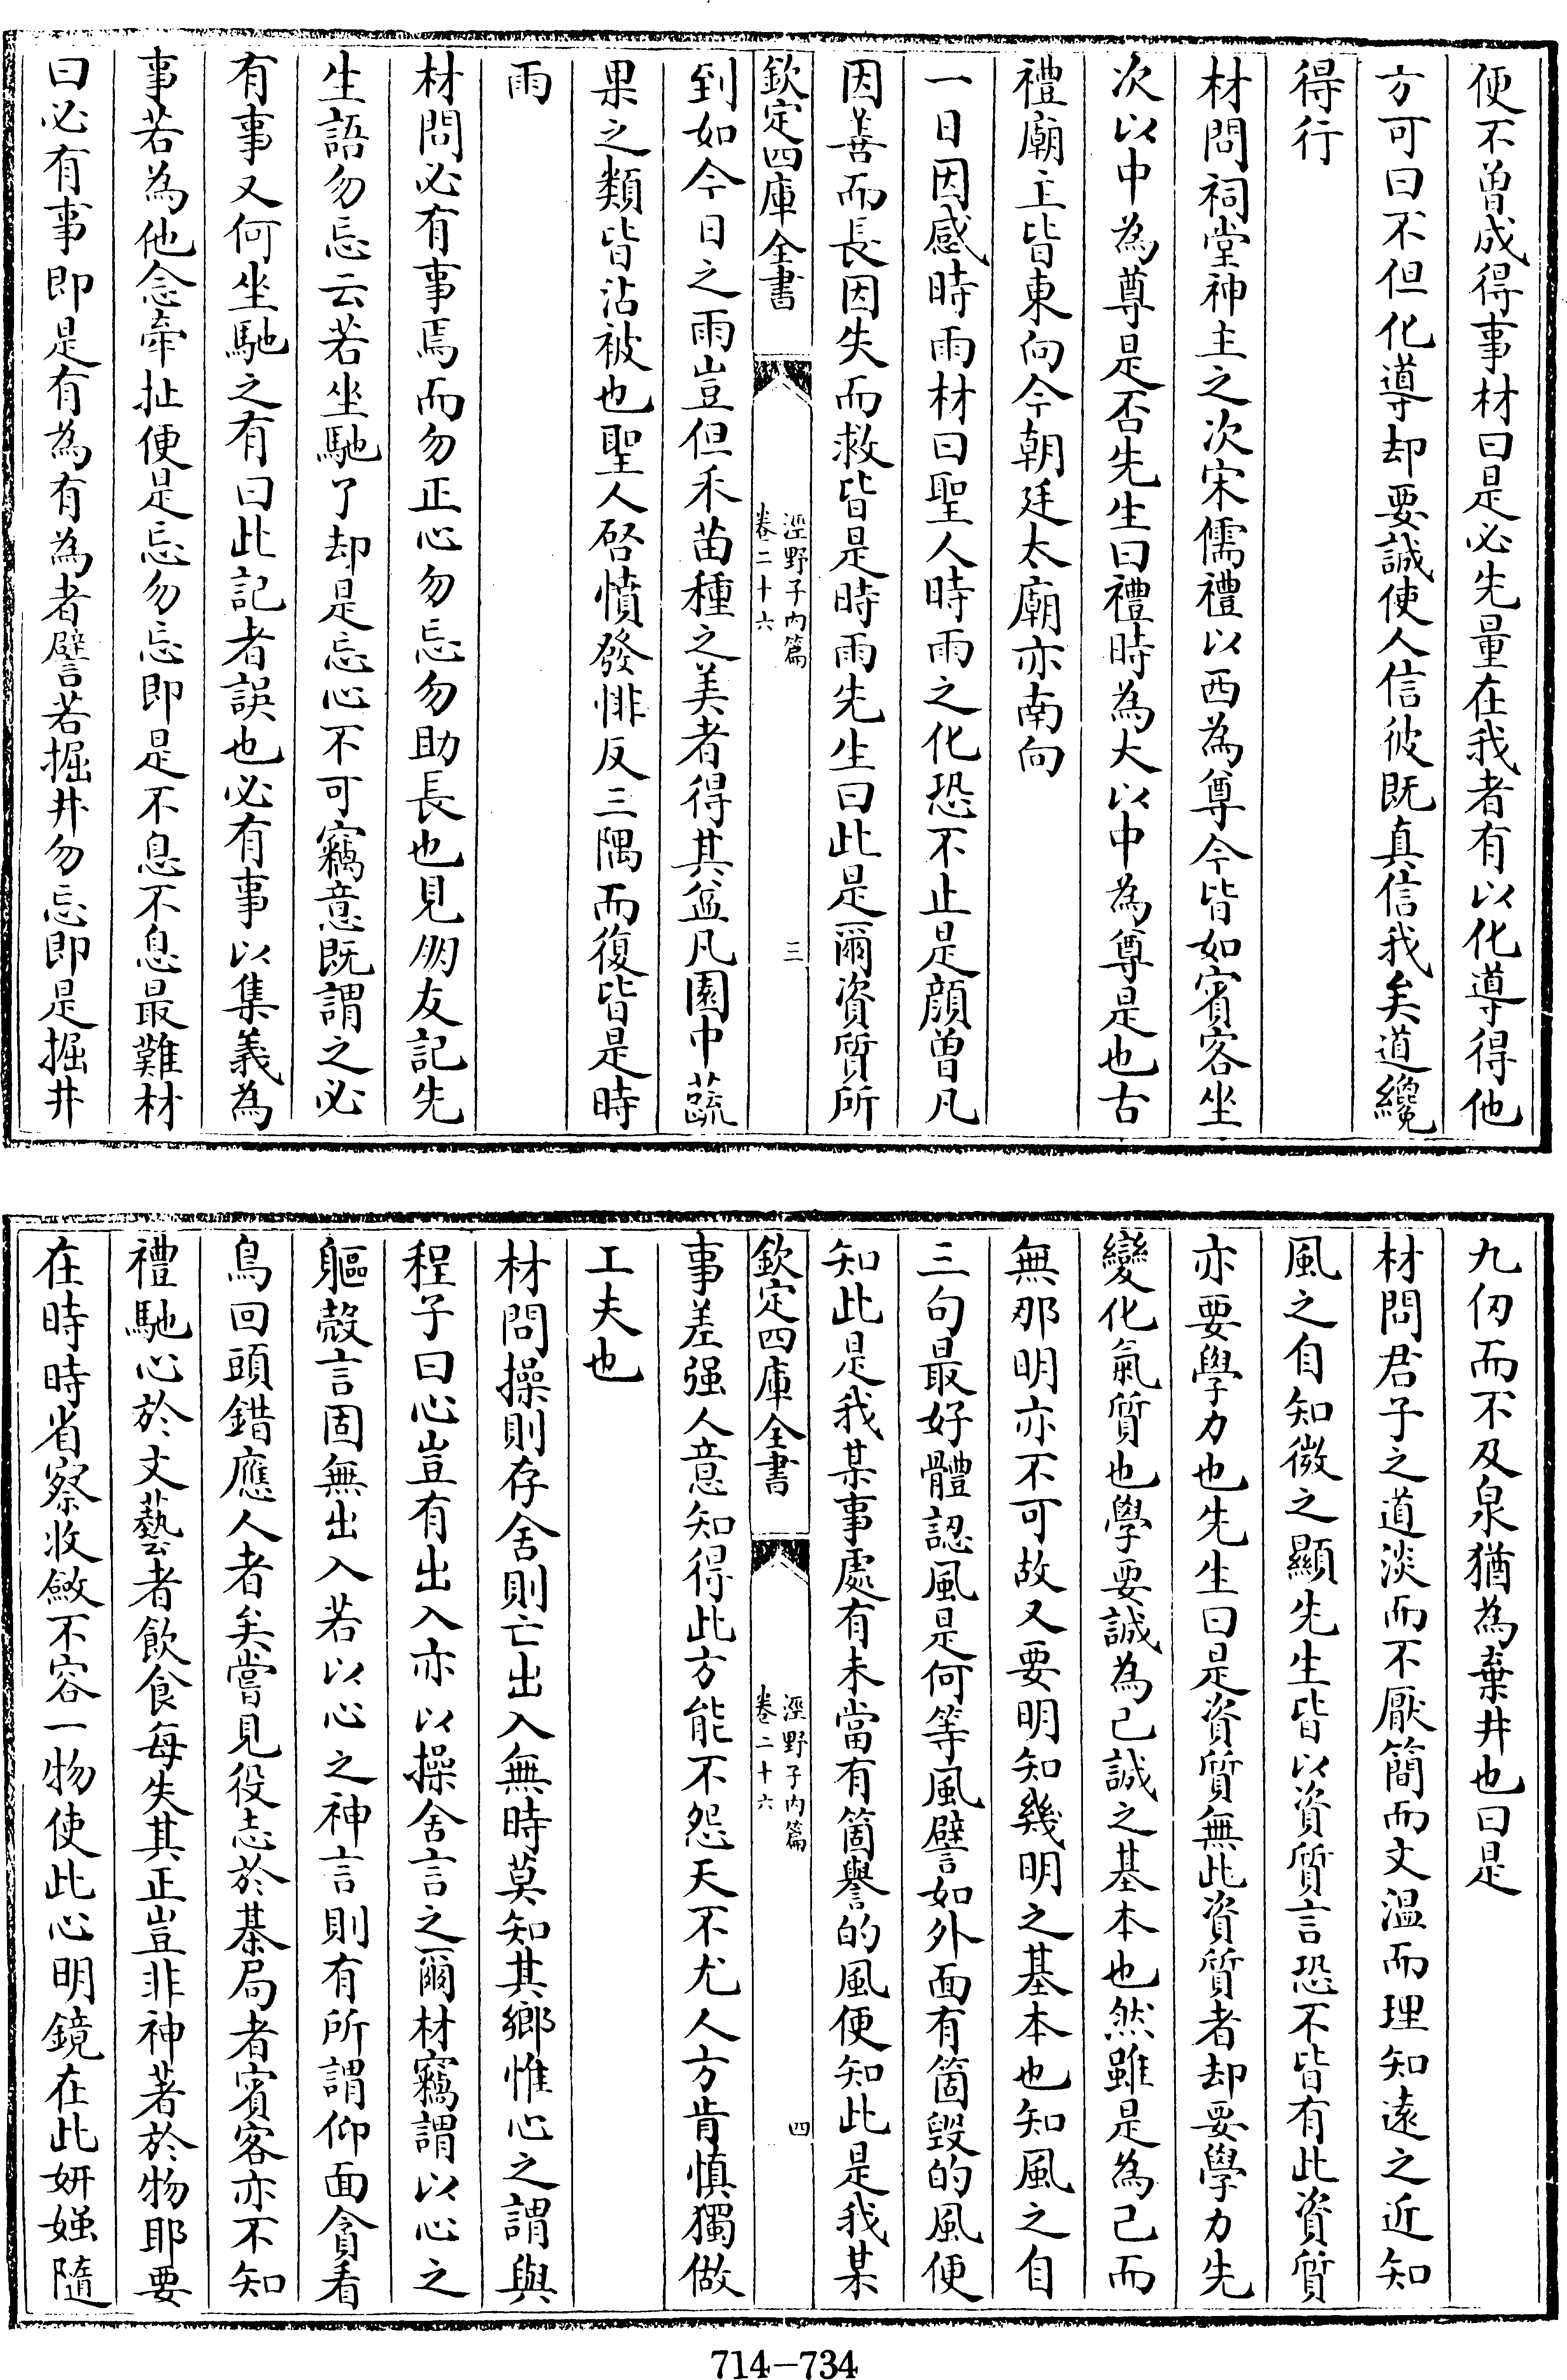 便不曾成得事材曰是必先量在我者有以化導得他
方可曰不但化導却要誠使人信彼既真信我矣道纔
得行
材問祠堂神主之次宋儒禮以西為尊今皆如賓客坐
次以中為尊是否先生曰禮時為大以中為尊是也古
禮廟主皆東向今朝廷太廟亦南向
一日因感時雨材曰聖人時雨之化恐不止是顔曾凡
因善而長因失而救皆是時雨先生曰此是爾資質所
欽定四庫全書
涇野子内篇
卷二十六
三
到如今日之雨豈但禾苗種之美者得其益凡園中蔬
果之類皆沾被也聖人啓憤發悱反三隅而復皆是時
雨
材問必有事焉而勿正心勿忘勿助長也見朋友記先
生語勿忘云若坐馳了却是忘心不可竊意既謂之必
有事又何坐馳之有曰此記者誤也必有事以集義為
事若為他念牽扯便是忘勿忘即是不息不息最難材
曰必有事即是有為有為者譬若掘井勿忘即是掘井
九仞而不及泉猶為棄井也曰是
材問君子之道淡而不厭簡而文温而理知遠之近知
風之自知微之顯先生皆以資質言恐不皆有此資質
亦要學力也先生曰是資質無此資質者却要學力先
變化氣質也學要誠為己誠之基本也然雖是為己而
無那明亦不可故又要明知幾明之基本也知風之自
三句最好體認風是何等風譬如外面有箇毀的風便
知此是我某事處有未當有箇譽的風便知此是我某
欽定四庫全書
涇野子内篇
卷二十六
四
事差强人意知得此方能不怨天不尤人方肯慎獨做
工夫也
材問操則存舍則亡出入無時莫知其鄉惟心之謂與
程子曰心豈有出入亦以操舍言之爾材竊謂以心之
軀殻言固無出入若以心之神言則有所謂仰面貪看
鳥回頭錯應人者矣嘗見役志於棊局者賓客亦不知
禮馳心於文藝者飲食每失其正豈非神著於物耶要
在時時省察收斂不容一物使此心明鏡在此妍媸隨
714-734